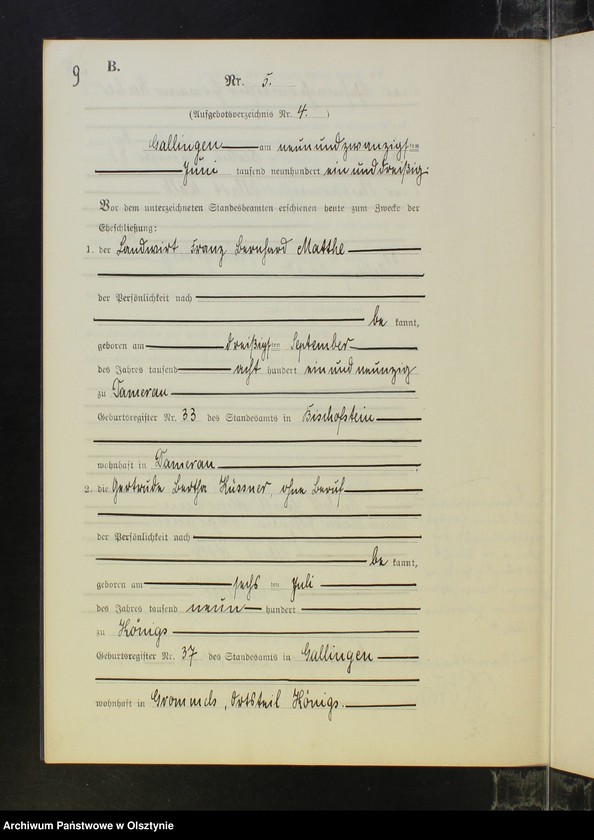 9 B.
Nr. 5.
(Aufgebotsverzeichnis Nr. 4. )
Gallingen am neunundzwanzigsten
Juni tausend neunhundert einunddreißig.
Vor dem unterzeichneten Standesbeamten erschienen heute zum Zwecke der
Eheschließung:
1. der Landwirt Franz Bernhard Matthe
der Persönlichkeit nach
be kannt,
geboren am dreißigsten September
des Jahres tausend acht hundert einundneunzig
zu Damerau
Geburtsregister Nr. 33 des Standesamts in Bischofstein
wohnhaft in Damerau
2. die Gertrude Bertha Hüssner, ohne Beruf
der Persönlichkeit nach
be kannt,
geboren am sechsten Juli
des Jahres tausend neun hundert
zu Königs
Geburtsregister Nr. 37 des Standesamts in Gallingen
wohnhaft in Grommels, Ortsteil Königs.
Archiwum Państwowe w Olsztynie